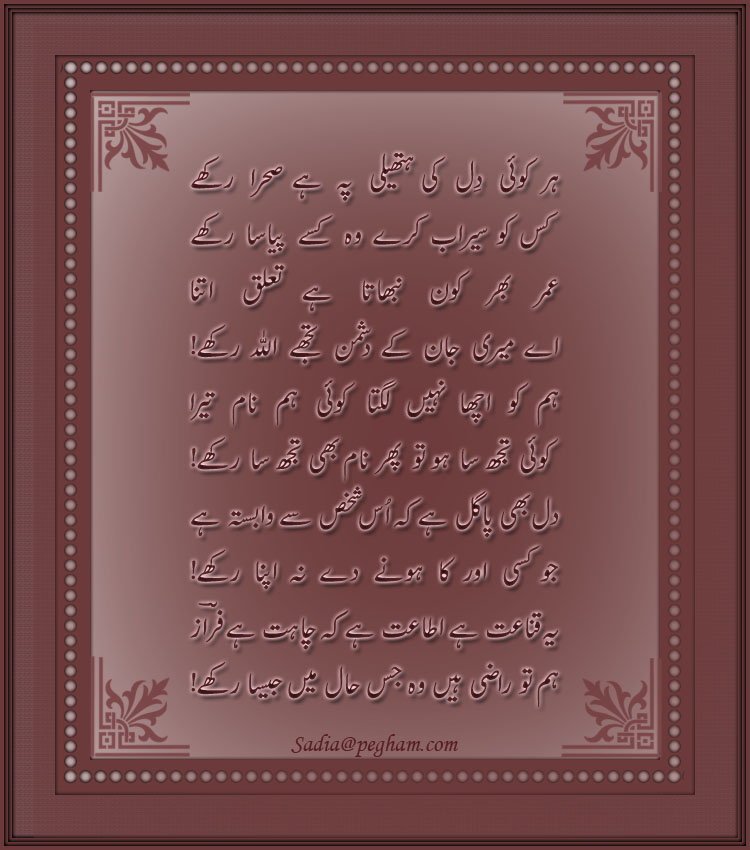 ہر کوئی دِل کی ہتھیلی پہ ہے صحرا رکھے
کس کو سیراب کرے وہ کسے پیاسا رکھے
عمر بھر کون نبھاتا ہے تعلق اتنا
اے میری جان کے دشمن تجھے اللہ رکھے!
ہم کو اچھا نہیں لگتا کوئی ہم نام تیرا
کوئی تجھ سا ہو تو پھر نام بھی تجھ سا رکھے!
دل بھی پاگل ہے کہ اُس شخص سے وابستہ ہے
جو کسی اور کا ہونے دے نہ اپنا رکھے!
یہ قناعت ہے اطاعت ہے کہ چاہت ہے فرازؔ
ہم تو راضی ہیں وہ جس حال میں جیسا رکھے!
Sadia@pegham.com